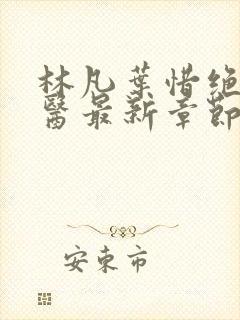 林凡葉惜绝
醫最新章節
安東市